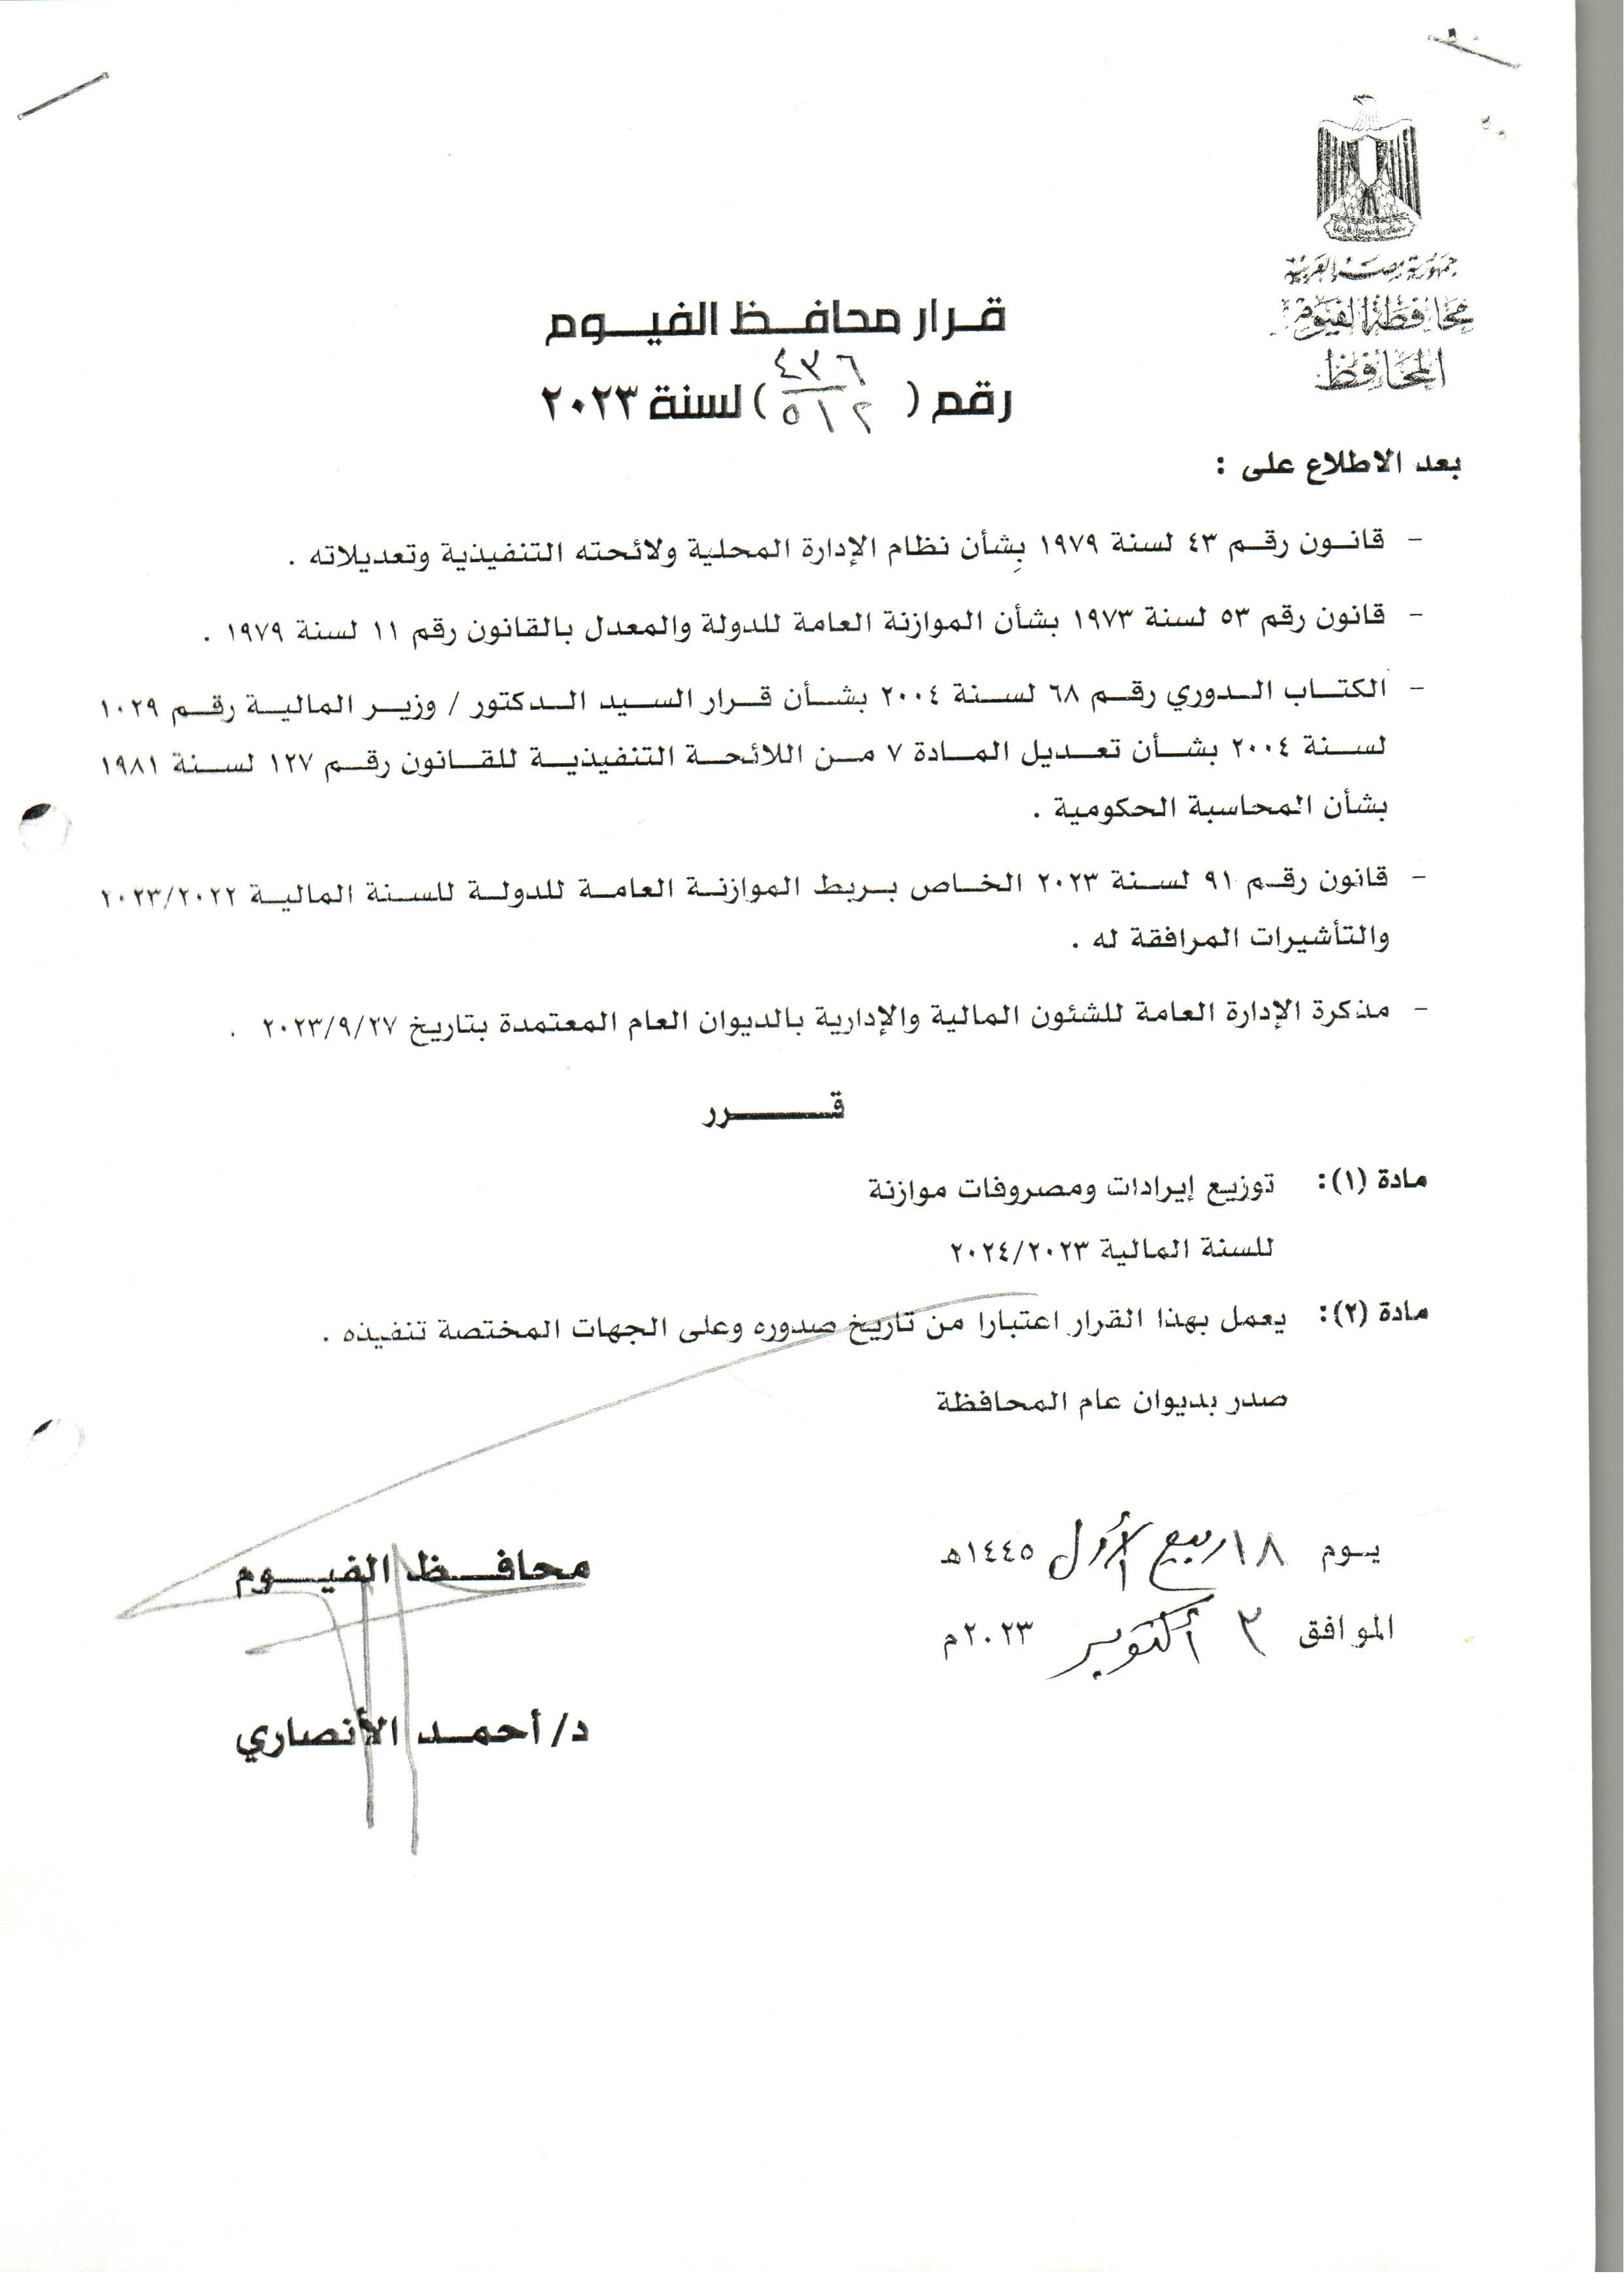 جمهورية مصر العربية
محافظة الفيوم
المحافظ
قرار محافظ الفيوم
رقم ( ٤٣٦ / ٥١٢ ) لسنة ٢٠٢٣
بعد الاطلاع على :
- قانون رقم ٤٣ لسنة ١٩٧٩ بشأن نظام الإدارة المحلية ولائحته التنفيذية وتعديلاته .
- قانون رقم ٥٣ لسنة ١٩٧٣ بشأن الموازنة العامة للدولة والمعدل بالقانون رقم ١١ لسنة ١٩٧٩ .
- الكتاب الدوري رقم ٦٨ لسنة ٢٠٠٤ بشأن قرار السيد الدكتور / وزير المالية رقم ١٠٢٩
لسنة ٢٠٠٤ بشأن تعديل المادة ٧ من اللائحة التنفيذية للقانون رقم ١٢٧ لسنة ١٩٨١
بشأن المحاسبة الحكومية .
- قانون رقم ٩١ لسنة ٢٠٢٣ الخاص بربط الموازنة العامة للدولة للسنة المالية ٢٠٢٣/٢٠٢٢
والتأشيرات المرافقة له .
- مذكرة الإدارة العامة للشئون المالية والإدارية بالديوان العام المعتمدة بتاريخ ٢٠٢٣/٩/٢٧ .
قرر
مادة (١): توزيع إيرادات ومصروفات موازنة
للسنة المالية ٢٠٢٤/٢٠٢٣
مادة (٢): يعمل بهذا القرار اعتبارا من تاريخ صدوره وعلى الجهات المختصة تنفيذه .
صدر بديوان عام المحافظة
يوم ١٨ ربيع الأول ١٤٤٥هـ
الموافق ٣ أكتوبر ٢٠٢٣م
محافظ الفيوم
د/ أحمد الأنصاري